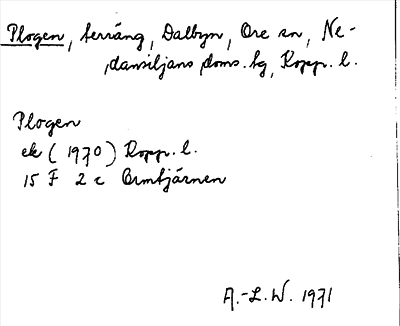 Plogen, terräng, Dalbyn, Ore sn, Ne-
dansiljans doms. tg, Kopp. l.
Plogen
ek (1970) Kopp. l.
15 F 2 c Ormtjärnen
A.-L.W. 1971